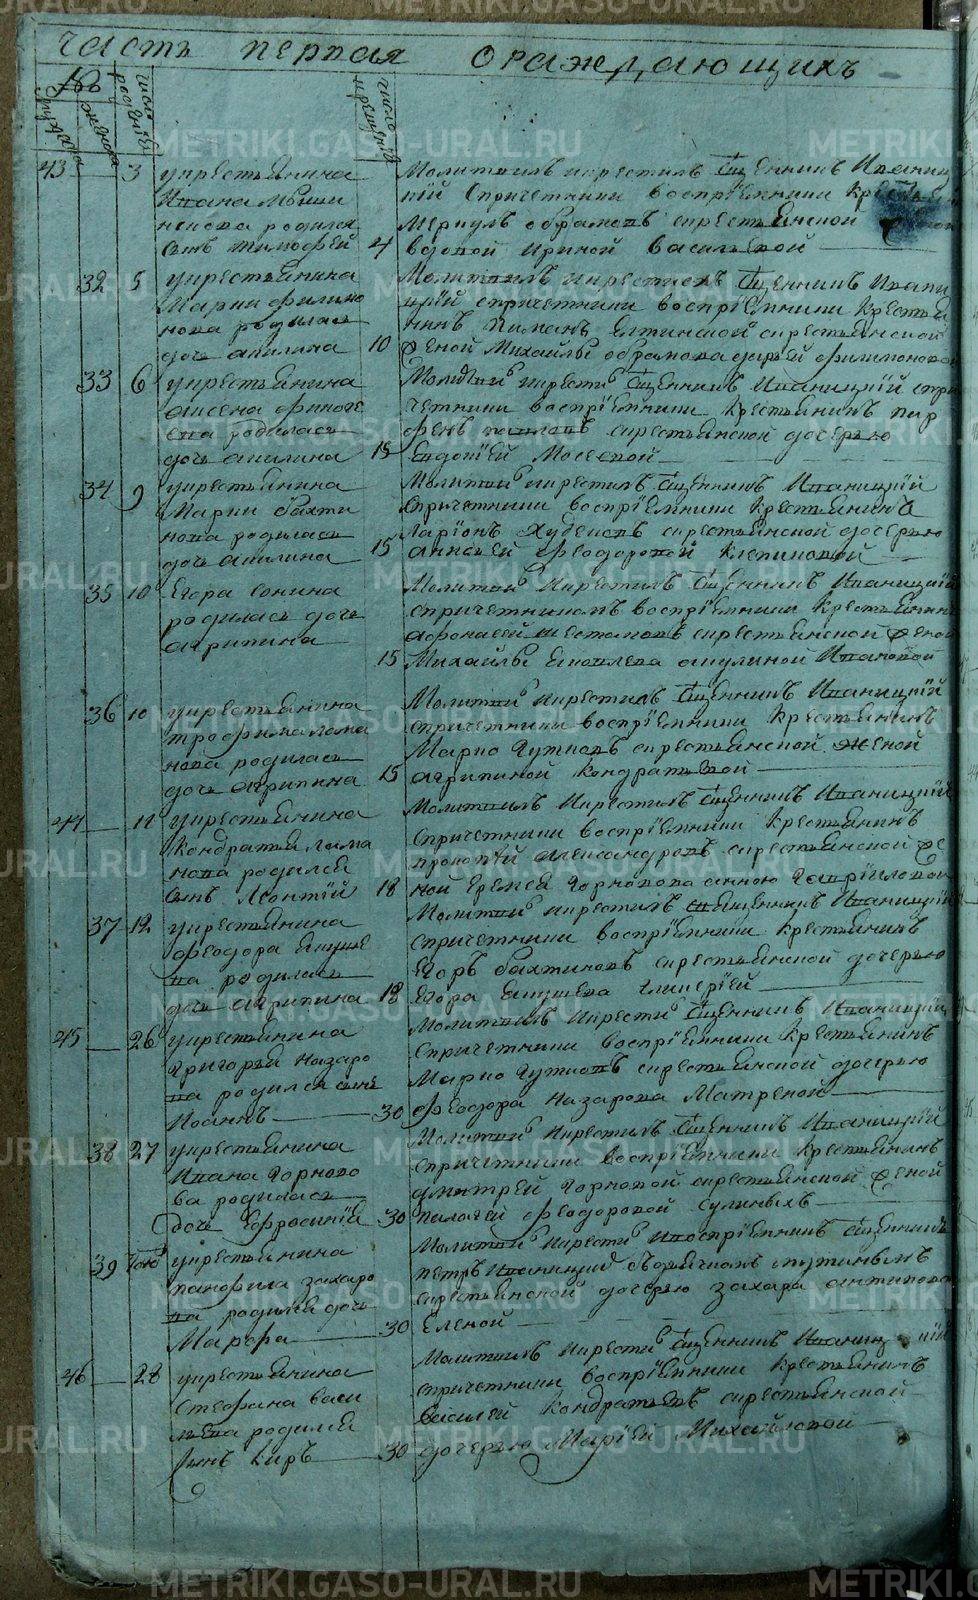 часть первая ораждающихъ
число рожденїя
число крещенїя
№
мужеска
женска
43 3 укрестьянина
Ивана
родился
сынъ тимофей 4
Молитвилъ икрестилъ Сщенникъ Иваниц
кїй Спричетники воспрїемники
Меркулъ абрамовъ скрестьянской
вдовой Ириной васильевой
32 5 укрестьянина
Марки филимо
нова родилась
дочь акилина 10
Молитвилъ икрестилъ Сщенникъ Ивани
цкїй спричетники воспрїемники Крестья
нинъ скрестьянской
женой Михайлы абрамова дарьей филимоновой
33 6 укрестьянина
аксена финоге
ева родилась
дочь акилина 15
Молитвилъ икрестилъ Сщенникъ Иваницкїй спри
четники воспрїемники Крестьянинъ пар
фенъ павловъ скрестьянской дочерью
Евдокїей Мосеевой
34 9 укрестьянина
Марки бахти
нова родилась
дочь акилина 15
Молитвилъ икрестилъ Сщенникъ Иваницкїй
спричетники воспрїемники Крестьянинъ
Ларїонъ скрестьянской дочерью
феодоровой
35 10 Егора сонина
родилась дочь
агрипина
15
Молитвилъ икрестилъ Сщенникъ Иваницкїй
спричетникомъ воспрїемники Крестьянинъ
афонасей шестаковъ скрестьянской женой
Михайлы яковлева акулиной Ивановой
36 10 укрестьянина
трофима лома
нова родилась
дочь агрипина 15
Молитвилъ икрестилъ Сщенникъ Иваницкїй
спричетники воспрїемники Крестьянинъ
Марко скрестьянской женой
агрипиной кондратьевой
44 11 укрестьянина
Кондратья лома
нова родился
сынъ Леонтїй 18
Молитвилъ икрестилъ Сщенникъ Иваницкїй
спричетники воспрїемники Крестьянинъ
прокопїй александровъ скрестьянской же
ной Ермея горновова анною гаврїиловой
37 12 укрестьянина
феодора якуше
ва родилась
дочь агрипина 18
Молитвилъ икрестилъ священникъ Иваницкїй
спричетники воспрїемники Крестьянинъ
Егоръ бахтиновъ скрестьянской дочерью
Егора якушева гликерїей
45 26 укрестьянина
григорья Назаро
ва родился сынъ
Иоаннъ 30
Молитвилъ икрестилъ Сщенникъ Иваницкїй
спричетники воспрїемники Крестьянинъ
Марко скрестьянской дочерью
феодора Назарова Матреной
38 27 укрестьянина
Ивана горново
ва родилась
дочь Ефросинїя 30
Молитвилъ икрестилъ Сщенникъ Иваницкїй
спричетники воспрїемники Крестьянинъ
дмитрей горновой скрестьянской женой
палагей феодоровой
39 укрестьянина
панфила захаро
ва родилася дочь
Марфа 30
Молитвилъ икрестилъ ивоспрїемникъ Сщенникъ
петръ Иваницкїй
скрестьянской дочерью захара антипова
Еленой
46 28 укрестьянина
Стефана васи
льева родился
сынъ Киръ 30
Молитвилъ икрестилъ Сщенникъ Иваницкїй
спричетники воспрїемники Крестьянинъ
василей кондратьевъ скрестьянской
дочерью Марїей Михайловой
METRIKI.GASO-URAL.RU